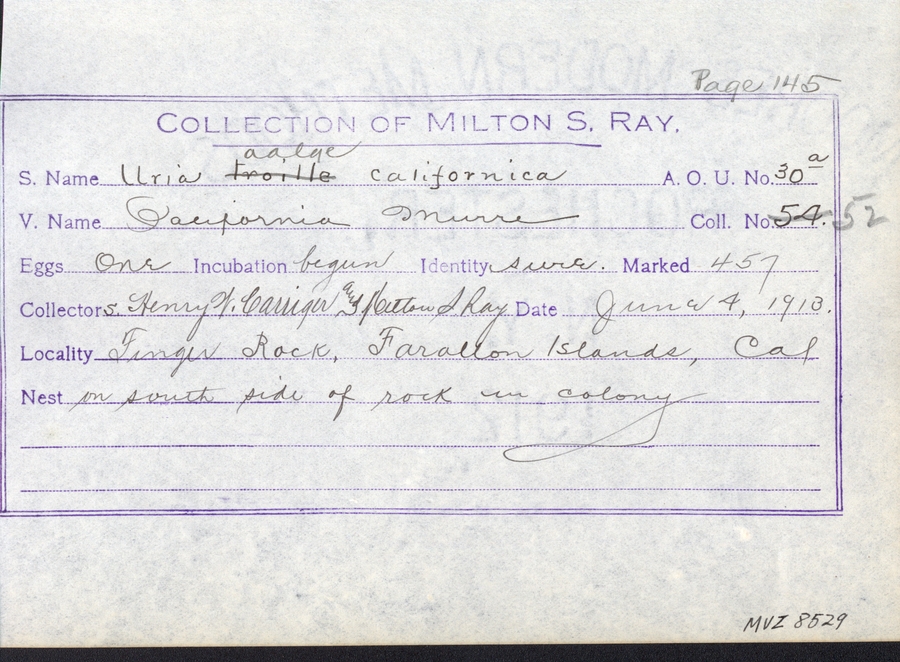 Page 145
COLLECTION OF MILTON S. RAY.
aalge
S. Name Uria troille californica A. O. U. No. 30a
V. Name California Murre Coll. No. 54. 52
Eggs One Incubation begun Identity sure. Marked 457
Collectors. Henry W. Carriger and Milton S Ray Date June 4, 1913.
Locality Finger Rock, Farallon Islands, Cal
Nest on south side of rock in colony
MVZ 8529